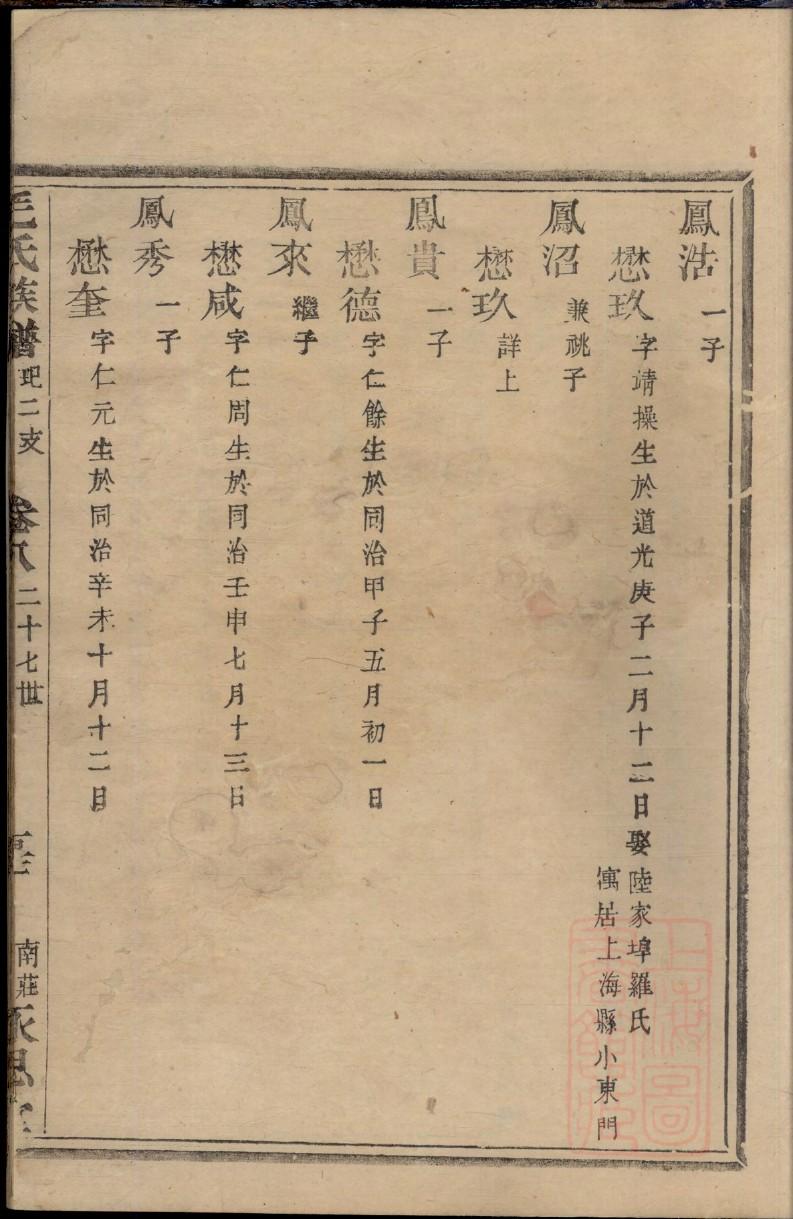 鳳浩 一子
懋玖 字靖操生於道光庚子二月十二日娶陸家埠羅氏
寓居上海縣小東門
鳳沼 兼祧子
懋玖 詳上
鳳貴 一子
懋德 字仁餘生於同治甲子五月初一日
鳳來 繼子
懋咸 字仁周生於同治壬申七月十三日
鳳秀 一子
懋奎 字仁元生於同治辛未十月十二日
毛氏族譜 二支 卷八 二十七世 南莊 永思堂